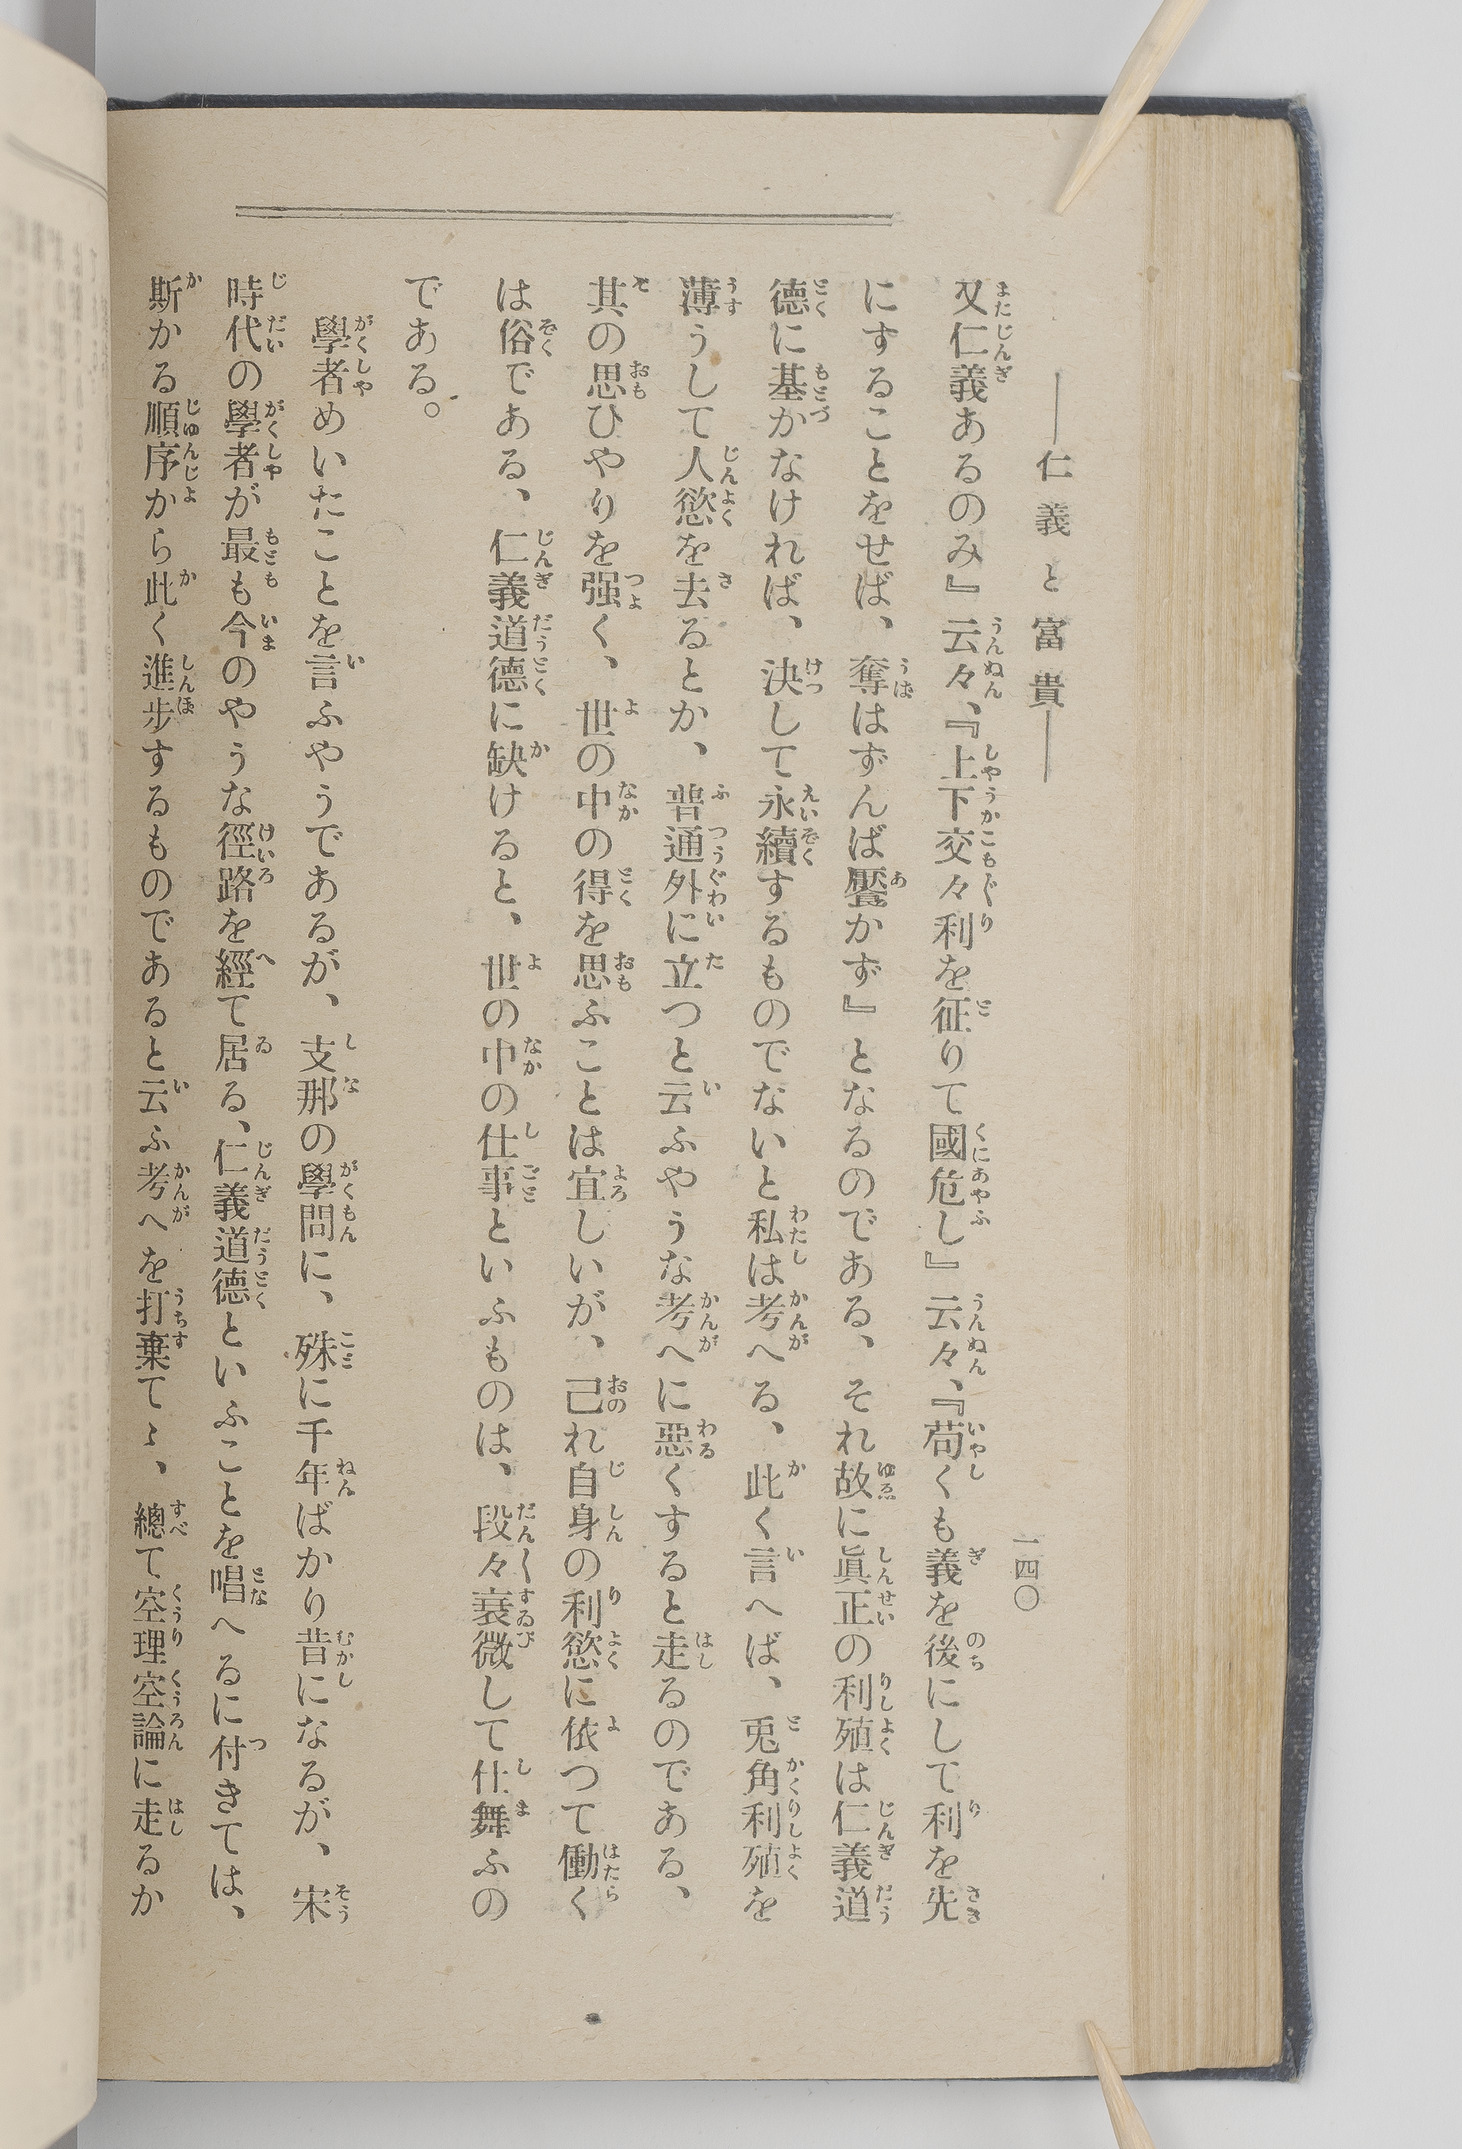 ――仁義と富貴――
一四〇
又仁義あるのみ』云々、『上下交々利を征りて國危し』云々、『苟くも義を後にして利を先
にすることをせば、奪はずんば饜かず』となるのである、それ故に眞正の利殖は仁義道
德に基かなければ、決して永續するものでないと私は考へる、此く言へば、兎角利殖を
薄うして人慾を去るとか、普通外に立つと云ふやうな考へに惡くすると走るのである、
其の思ひやりを强く、世の中の得を思ふことは宜しいが、己れ自身の利慾に依つて働く
は俗である、仁義道德に缺けると、世の中の仕事といふものは、段々衰微して仕舞ふの
である。
學者めいたことを言ふやうであるが、支那の學問に、殊に千年ばかり昔になるが、宋
時代の學者が最も今のやうな徑路を經て居る、仁義道德といふことを唱へるに付きては、
斯かる順序から此く進步するものであると云ふ考へを打棄てゝ、總て空理空論に走るか